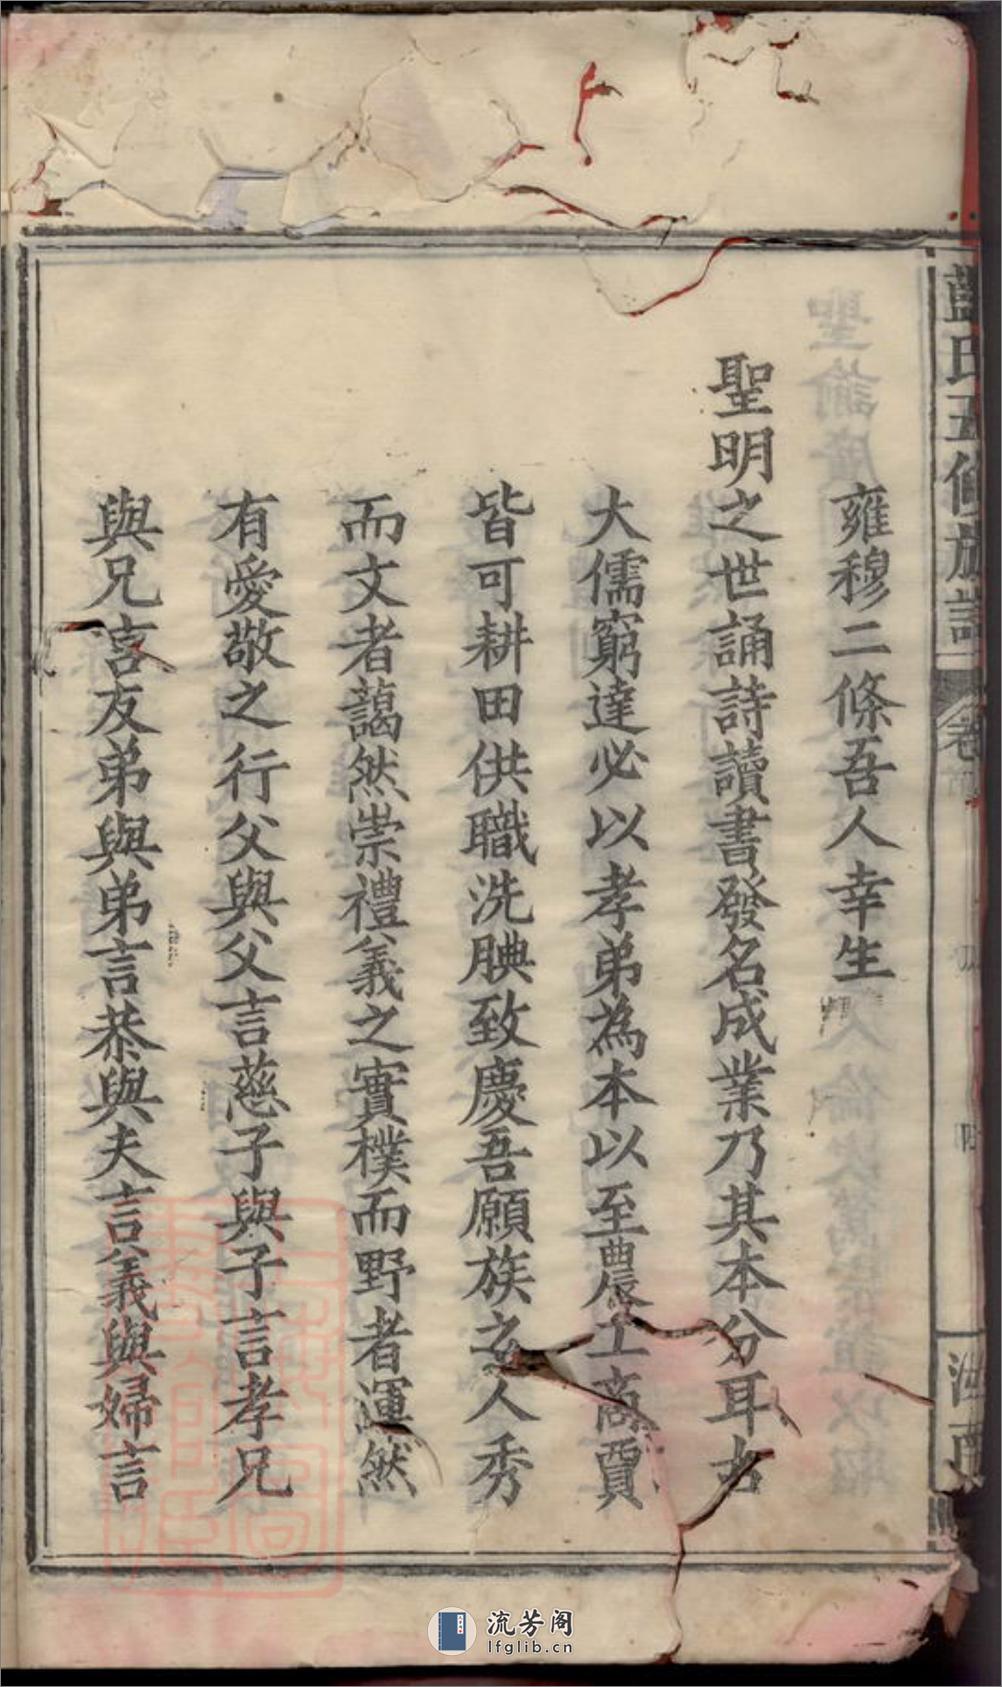 藍氏五修族譜
卷
雍穆二條吾人幸生
聖明之世誦詩讀書發名成業乃其本分耳古
大儒窮達必以孝弟為本以至農工商賈
皆可耕田供職洗腆致慶吾願族之人秀
而文者藹然崇禮義之實樸而野者渾然
有愛敬之行父與父言慈子與子言孝兄
與兄言友弟與弟言恭與夫言義與婦言
流芳阁
lfglib.cn